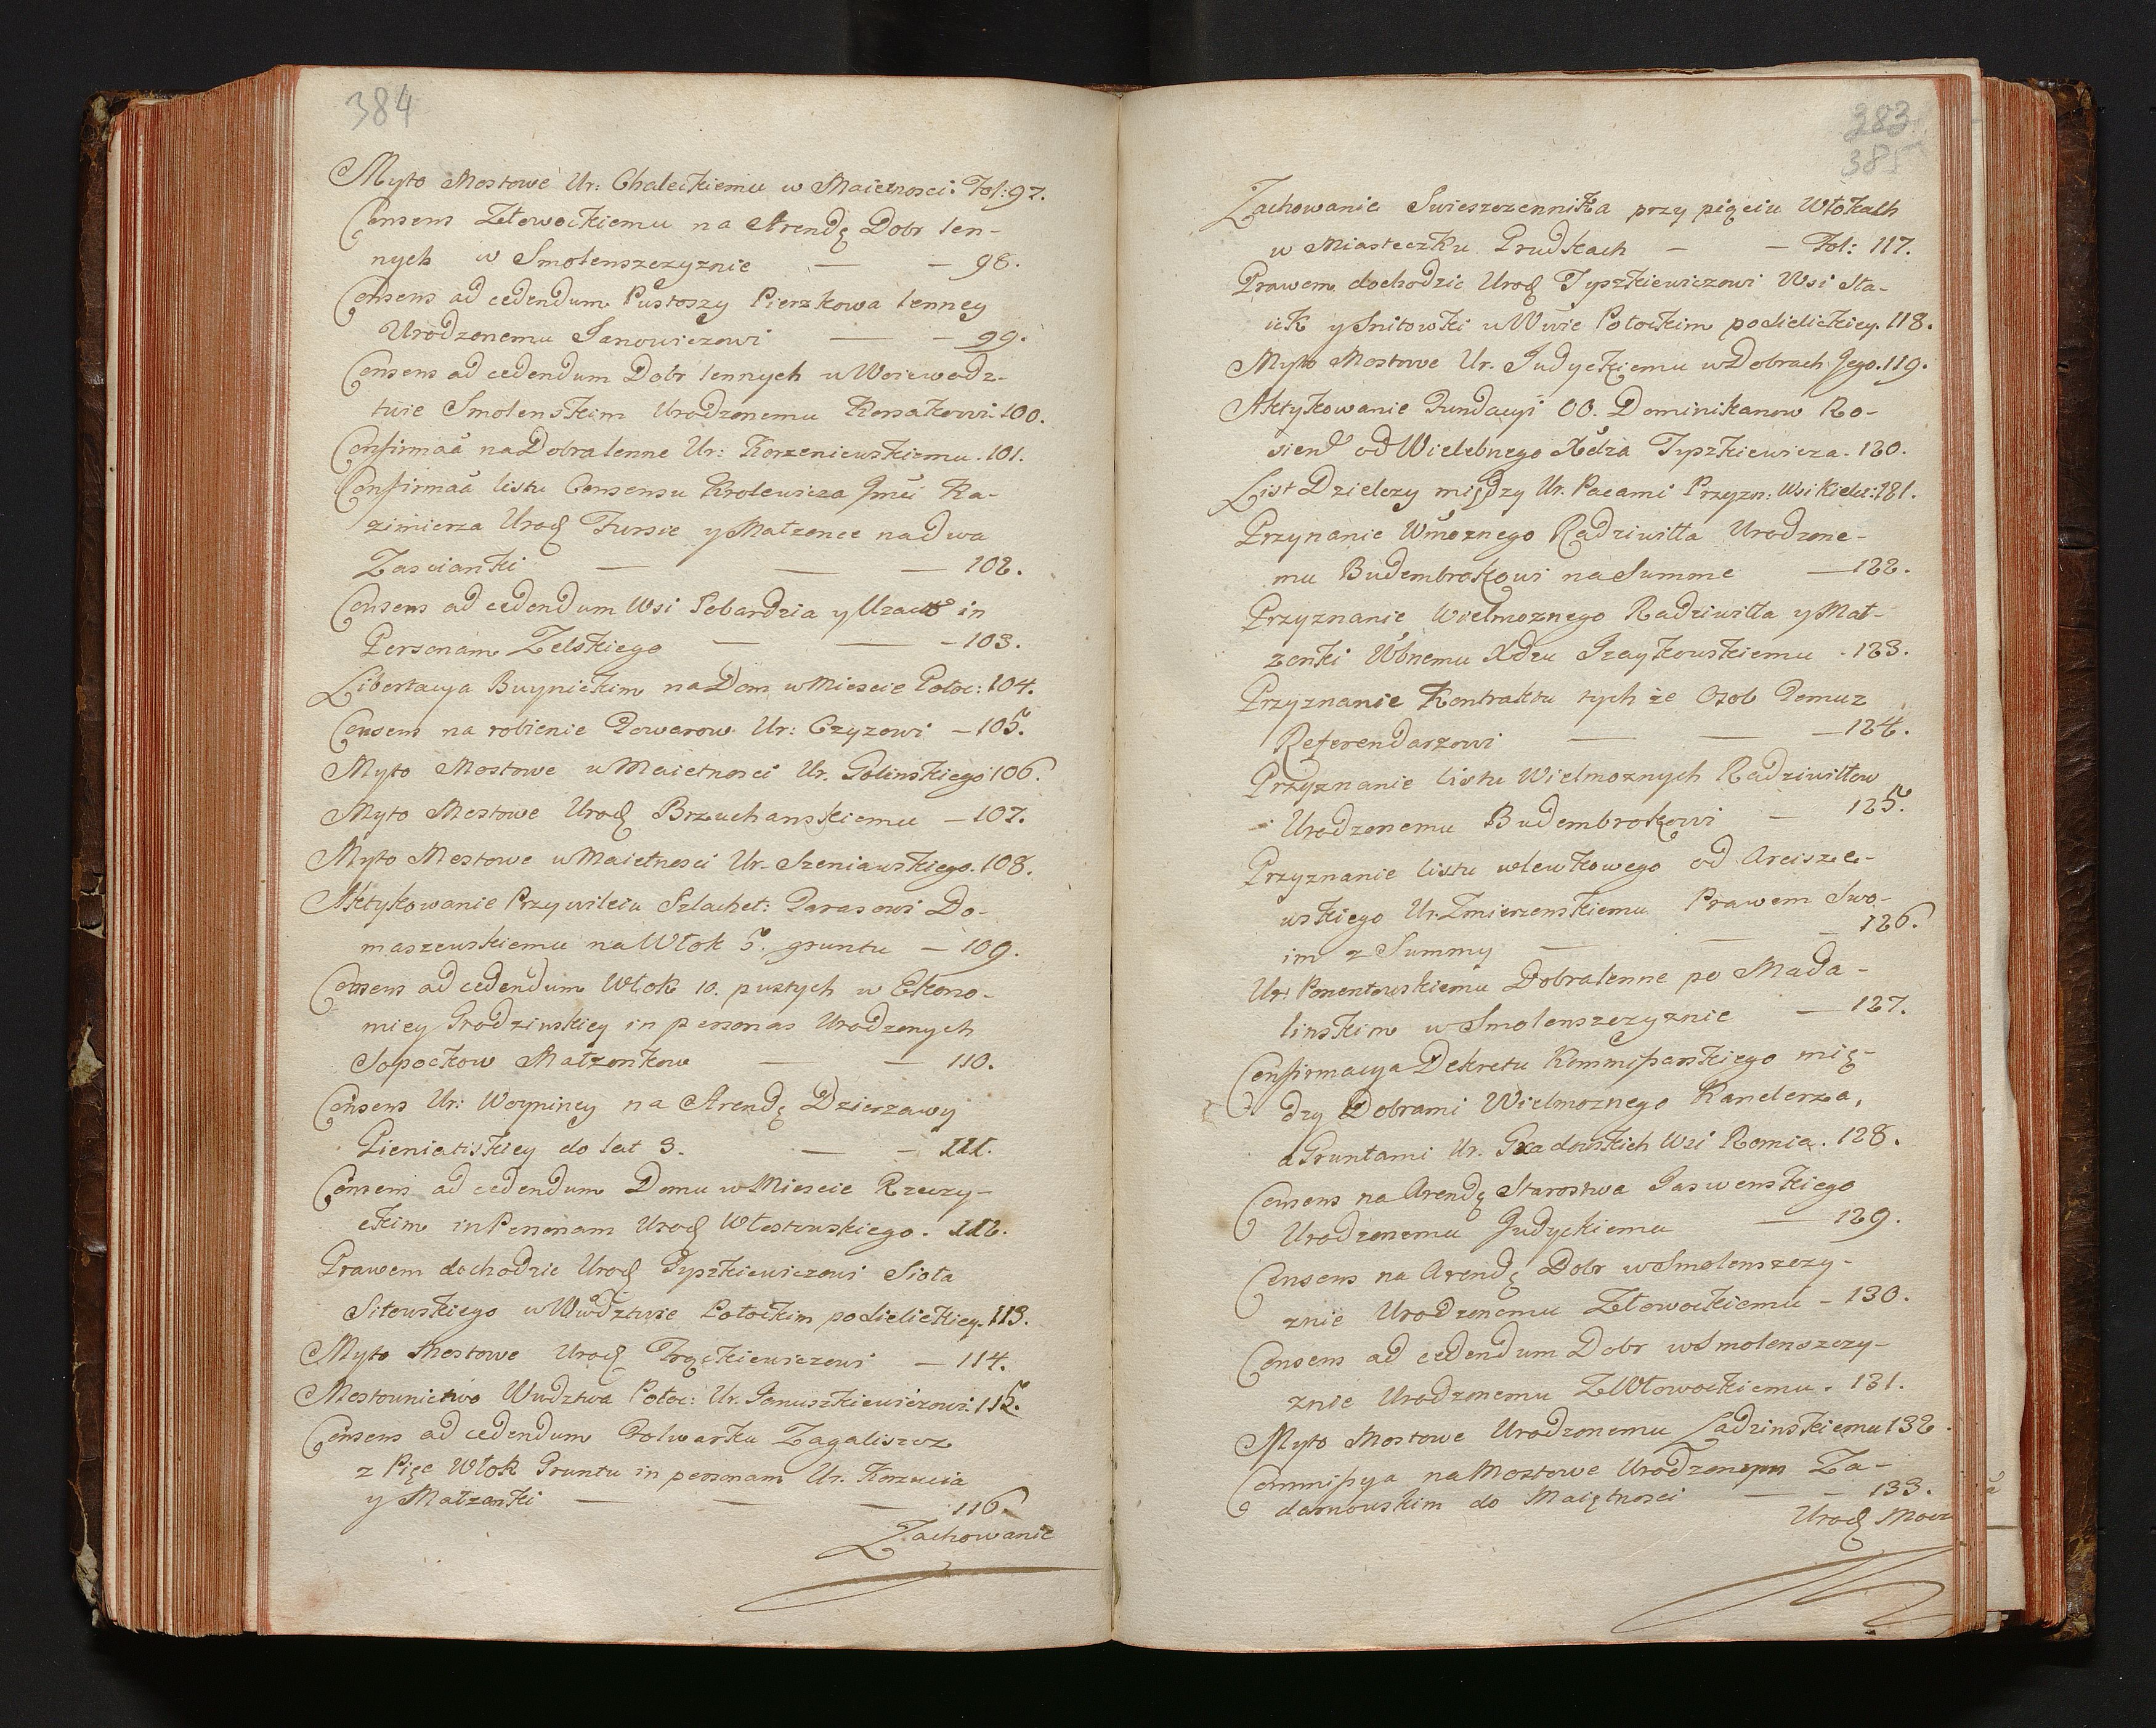 384
Myto Mostowe Ur: Chaleckiemu w Maiętnosci: Fol: 97.
Consens Złowockiemu na Arendę Dobr len-
nych w Smolenszczyznie — — 98.
Consens ad cedendum Pustoszy Pierzkowa lenney
Urodzonemu Janowiczowi — — 99.
Consens ad cedendum Dobr lennych w Woiewodz-
twie Smolenskim Urodzonemu Korsakowi. 100.
Confirmaã na Dobra lenne Ur: Korzeniewskiemu. 101.
Confirmaã listu Consensu Krolewicza Jmći Ka-
zimierza Urod Fursie y Małzonce na dwa
Zascianki — — — 102.
Consens ad cedendum Wsi Pobardzia y Uzacz in
Personam Zelskiego — — — 103.
Libertacya Buynickim na Dom w Miescie Połoc: 104.
Consens na robienie Towarow Ur: Czyzowi — 105.
Myto Mostowe w Maietnosci Ur. Golinskiego 106.
Myto Mostowe Urod Brzuchanskiemu — 107.
Myto Mostowe w Maietnosci Ur. Szeniawskiego. 108.
Aktykowanie Przywileiu Szlachet: Parasowi Do-
maszewskiemu na Włok 5. gruntu — 109.
Consens ad cedendum Włok 10. pustych w Ekono-
miey Grodzinskiey in personas Urodzonych
Sopockow Małzonkow — — 110.
Consens Ur: Woyniney na Arendę Dzierzawy
Pieniatiskiey do lat 3. — — 111.
Consens ad cedendum Domu w Miescie Rzeczy-
ckim in Personam Urod Włostowskiego. 112.
Prawem dochodzic Urod Tyszkiewiczowi Sioła
Sitowskiego w Wwdztwie Połockim podielickiey. 113.
Myto Mostowe Urod Frąckiewiczowi — 114.
Mostownictwo Wwdztwa Połoc: Ur. Januszkiewiczowi. 115.
Consens ad cedendum Folwarku Zagaliszcz
z Pięc Włok Gruntu in personam Ur. Korzucia
y Małzonki — — — 116.
Zachowanie
383
385
Zachowanie Swieszczennika przy pięciu Włokach
w Miasteczku Prudkach — — Fol: 117.
Prawem dochodzic Urod Tyszkiewiczowi Wsi Sta-
ick y Snitowki w Wwie Połockim podielickiey. 118.
Myto Mostowe Ur. Judyckiemu w Dobrach Jego. 119.
Aktykowanie Fundacyi OO. Dominikanow Ro-
sien od Wielebnego Xdza Tyszkiewicza. 120.
List Dzielczy między Ur. Pacami Przyzn: Wsi Kielz: 121.
Przynanie Wmoznego Radziwiłła Urodzone-
mu Budembrokowi na Summe — 122.
Przyznanie Wielmoznego Radziwiłła y Mał-
zonki Wbnemu Xdzu Izaykowskiemu - 123.
Przyznanie Kontraktu tych że Osob Temuz
Referendarzowi — — — 124.
Przyznanie listu Wielmoznych Radziwiłłow
Urodzonemu Budembrokowi — 125.
Przyznanie listu wlewkowego od Arcisze-
wskiego Ur. Zmierzenskiemu Prawem Swo-
im z Summy — — — 126.
Ur: Ponentowskiemu Dobra lenne po Mada-
linskim w Smolenszczyznie — 127.
Confirmacya Dekretu Kommissarskiego mię-
dzy Dobrami Wielmoznego Kanclerza,
a Gruntami Ur. Gradowskich Wsi Romia. 128.
Consens na Arendę Starostwa Jaswonskiego
Urodzonemu Judyckiemu — 129.
Consens na Arendę Dobr w Smolenszczy-
znie Urodzonemu Złowockiemu - 130.
Consens ad cedendum Dobr w Smolenszczy-
znie Urodzonemu ZWłowockiemu. 131.
Myto Mostowe Urodzonemu Ładzinskiemu 132.
Commissya na Mostowe Urodzonym Za-
darnowskim do Maiętnosci — — 133.
Urod